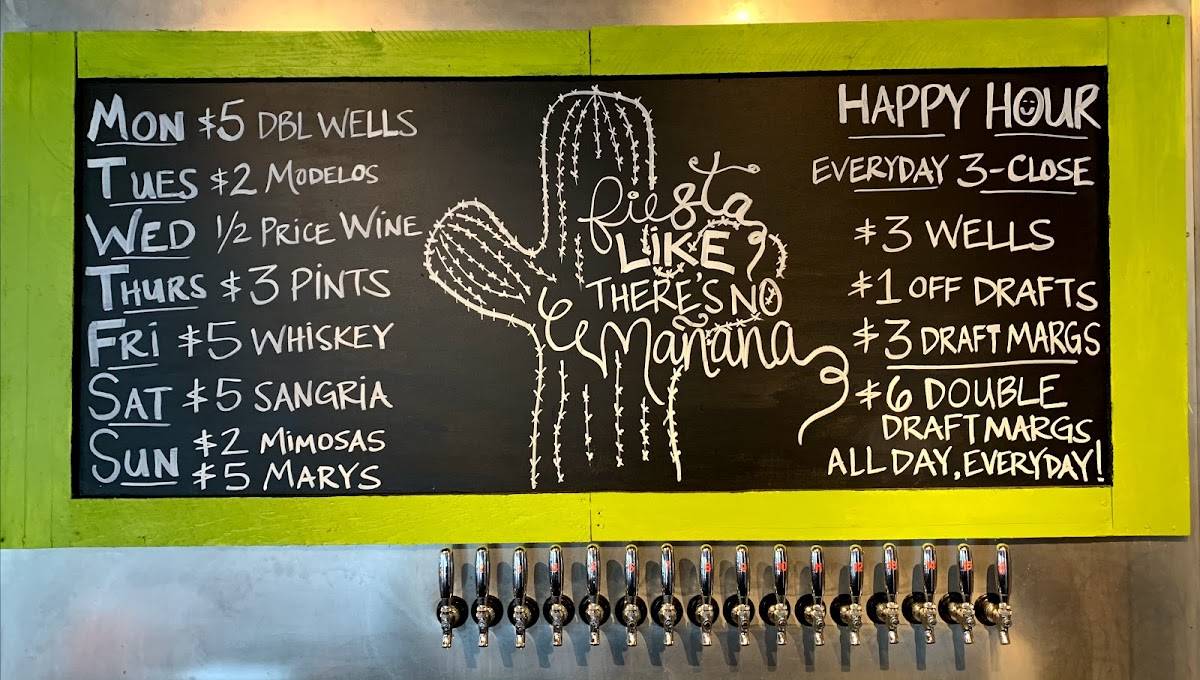 MON $5 DBL WELLS
TUES $2 MODELOS
WED 1/2 PRICE WINE
THURS $3 PINTS
FRI $5 WHISKEY
SAT $5 SANGRIA
SUN $2 MIMOSAS
$5 MARYS
fiesta
LIKE
THERE'S NO
Mañana
HAPPY HOUR
EVERYDAY 3-CLOSE
$3 WELLS
$1 OFF DRAFTS
$3 DRAFT MARGS
$6 DOUBLE
DRAFT MARGS
ALL DAY, EVERYDAY!